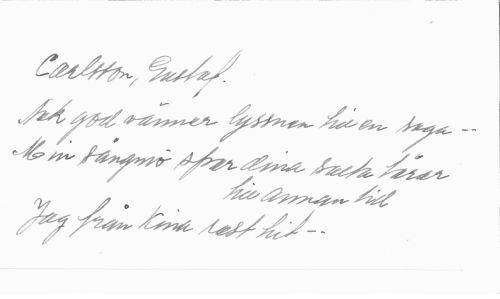 Carlsson, Gustaf.
Ack god vänner lyssnen till en saga --
Min sångmö spar dina salta tårar
till annan tid
Jag från Kina rest hit --